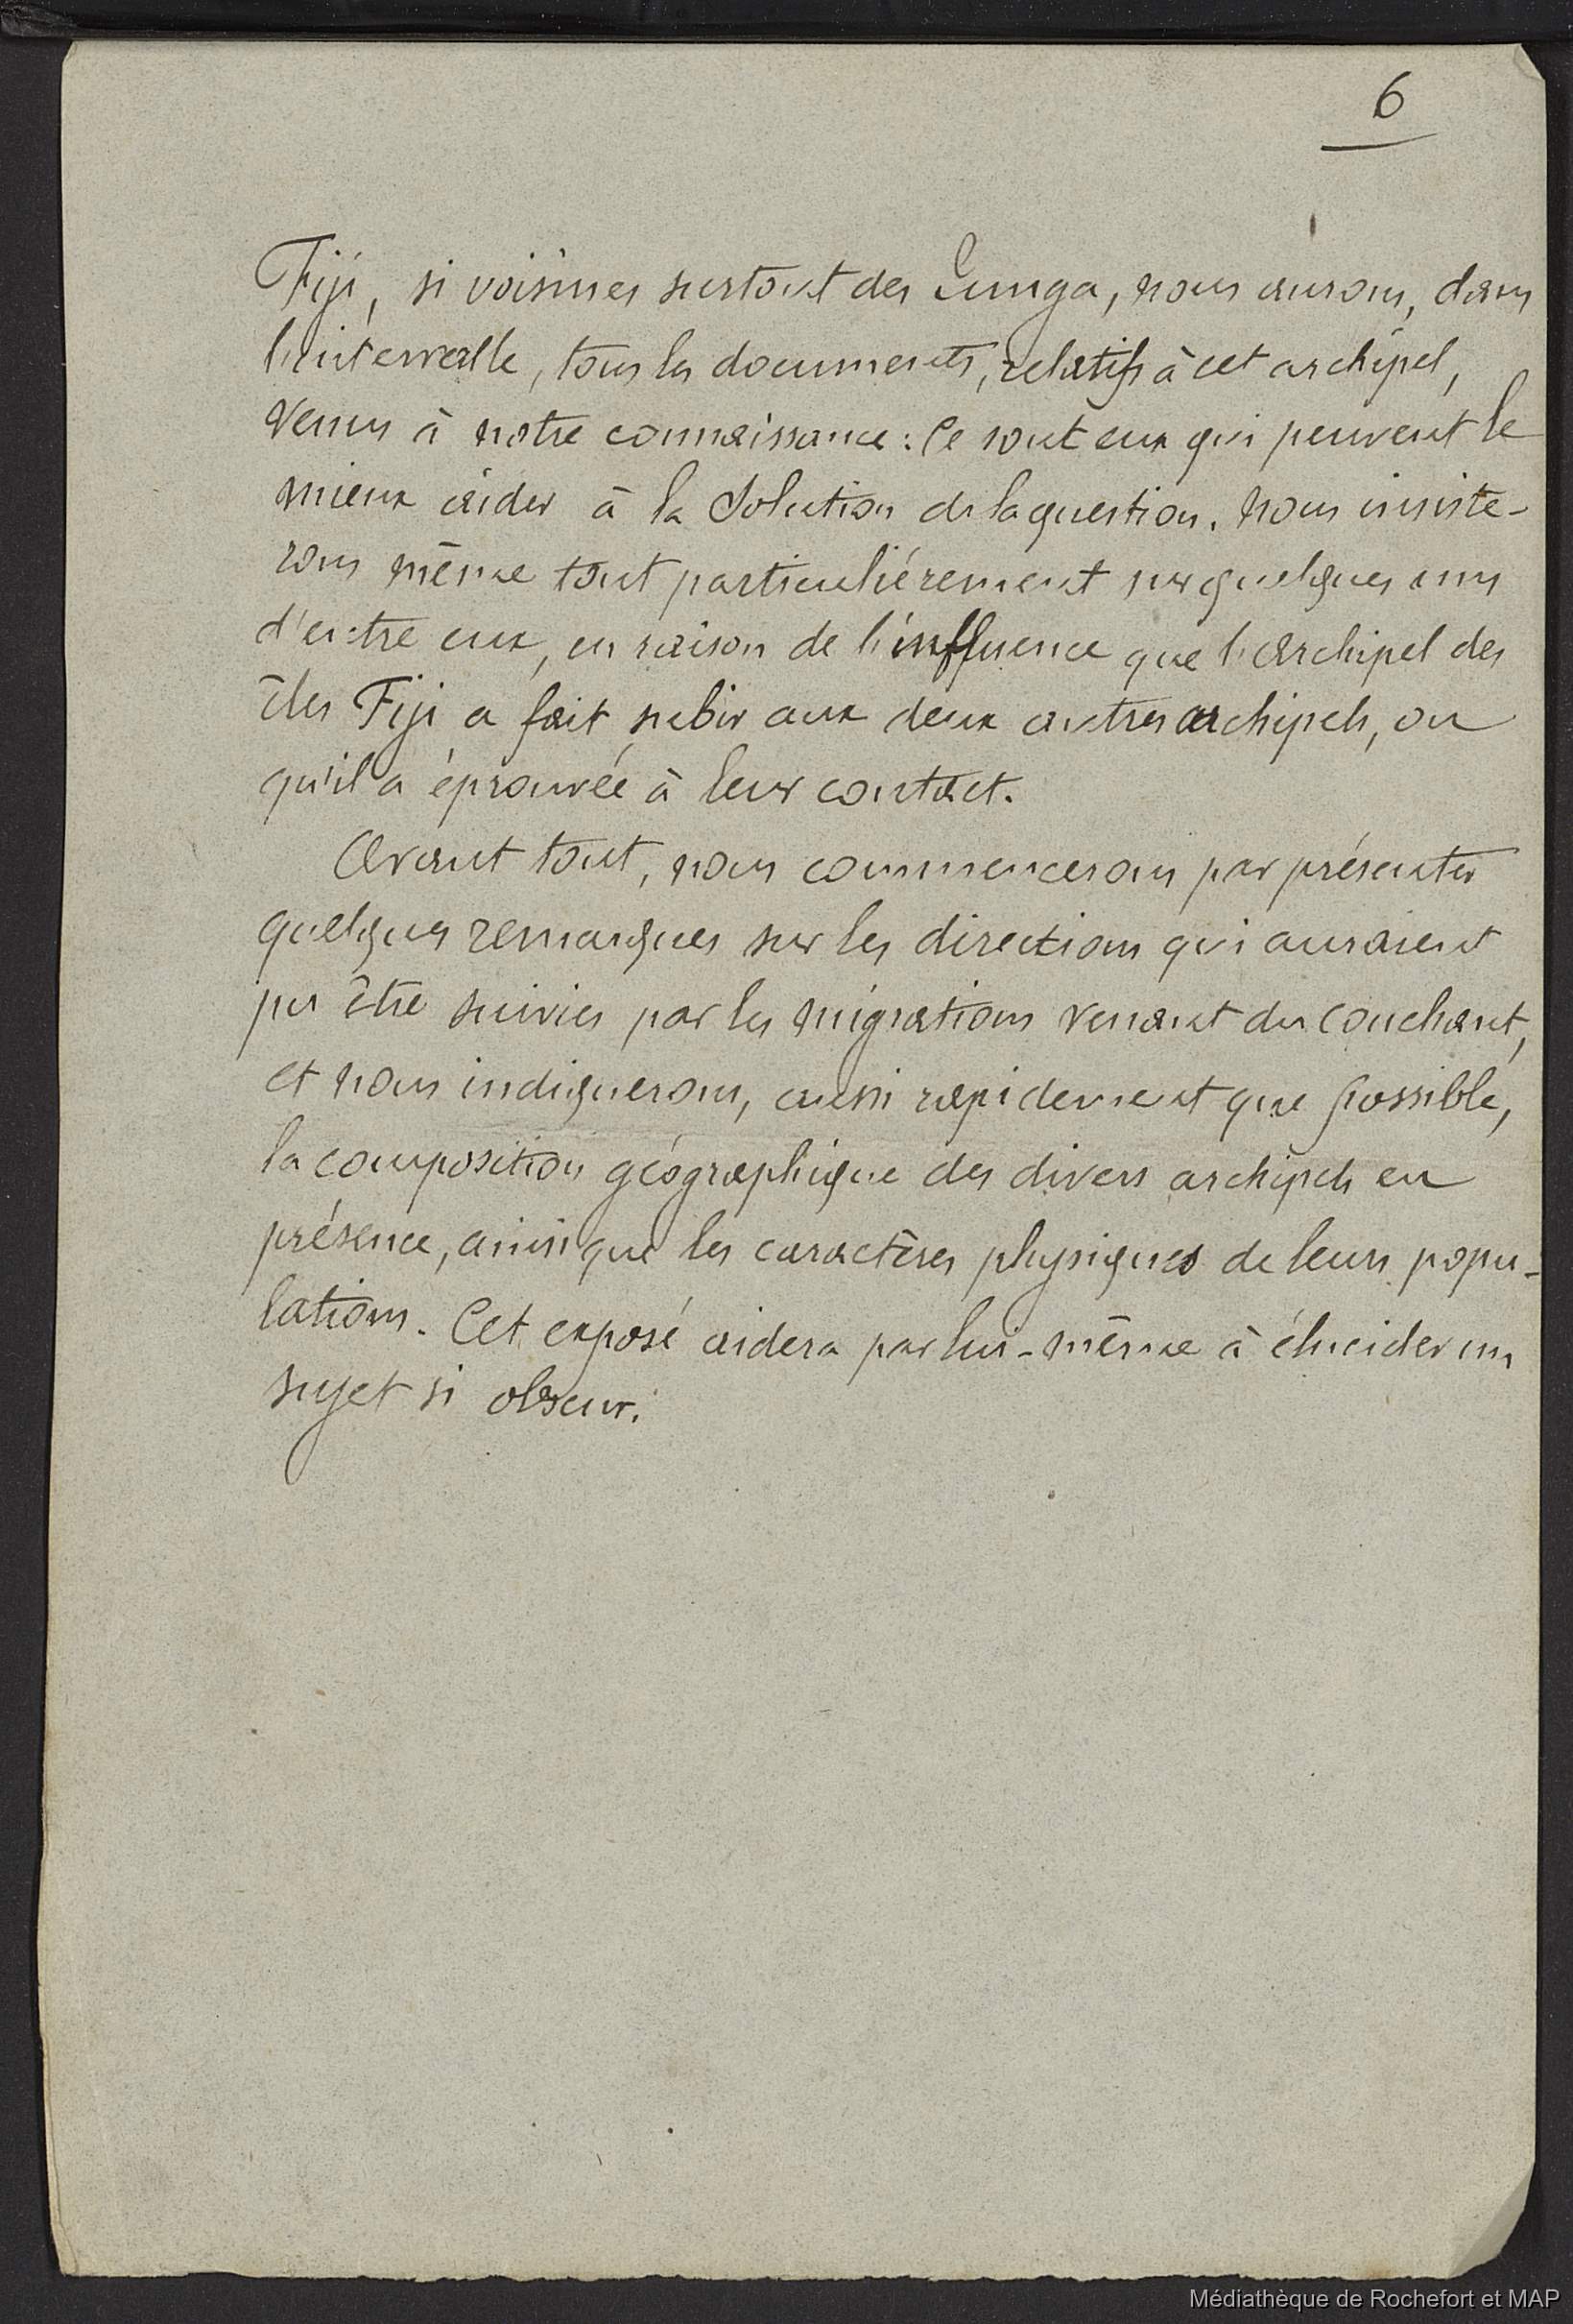 6
Fiji, si voisines surtout des Tunga, nous aurons, dans
l'intervalle, tous les documents, relatifs à cet archipel,
venus à notre connaissance : Ce sont eux qui peuvent le
mieux aider à la Solution de la question. Nous insiste-
rons même tout particuliérement sur quelques uns
d'entre eux, en raison de l'influence que l'archipel des
îles Fiji a fait subir aux deux autres archipels, ou
qu'il a éprouvée à leur contact.
Avant tout, nous commencerons par présenter
quelques remarques sur les directions qui auraient
pu être suivies par les migrations venant du couchant,
et nous indiquerons, aussi rapidement que possible,
la composition géographique des divers archipels en
présence, ainsi que les caractères physiques de leurs popu-
lations. Cet exposé aidera par lui-même à élucider un
sujet si obscur.
Médiathèque de Rochefort et MAP